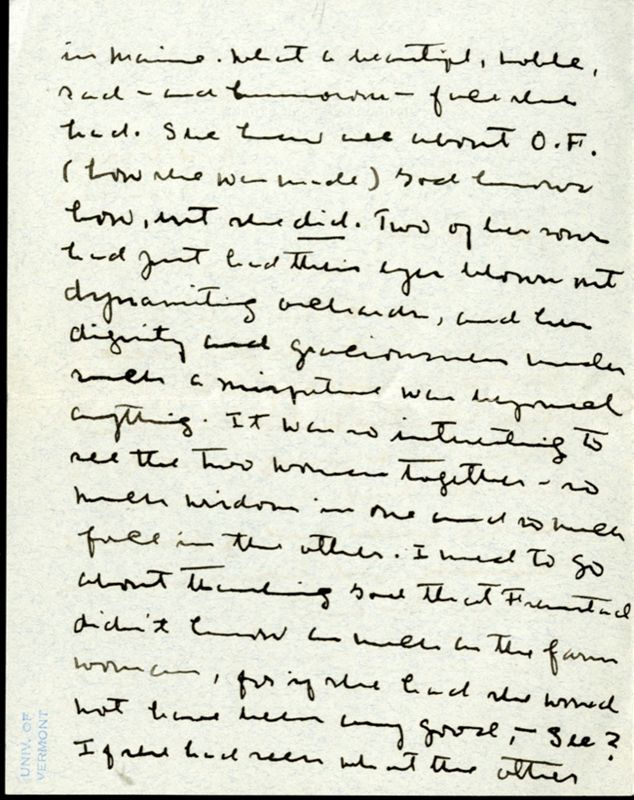 4
in Maine. What a beautiful, noble,
sad - and humorous - face she
had. She knew all about O.F.
(how she was made) God knows
how, but she did. Two of her sons
had just had their eyes blown out
dynamiting orchards, and her
dignity and graciousness under
such a misfortune was beyond
anything. It was so interesting to
see the two women together - so
much wisdom in one and so much
in the other. I used to go
about thanking God that Fremstad
didn't know as much as the farm
woman, for if she had she would
not have been any good, - See?
If she had seen what the other
UNIV. OF
VERMONT